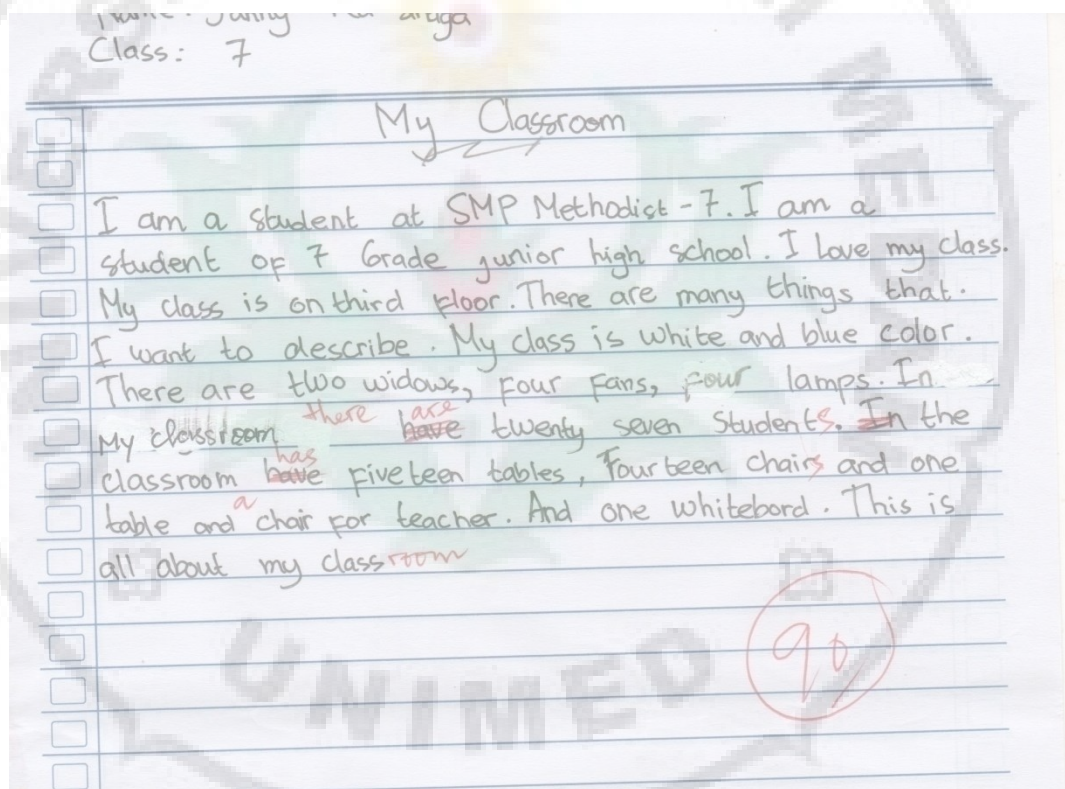 Class: 7
My Classroom
I am a student at SMP Methodist-7. I am a
student of 7 Grade junior high school. I Love my class.
My class is on third floor. There are many things that.
I want to describe. My class is white and blue color.
There are two widows, four fans, four lamps. In
My classroom there are have twenty seven Students. In the
classroom has have fiveteen tables, Fourteen chairs and one
table and a chair for teacher. And one whitebord. This is
all about my classroom
90
UNIMED